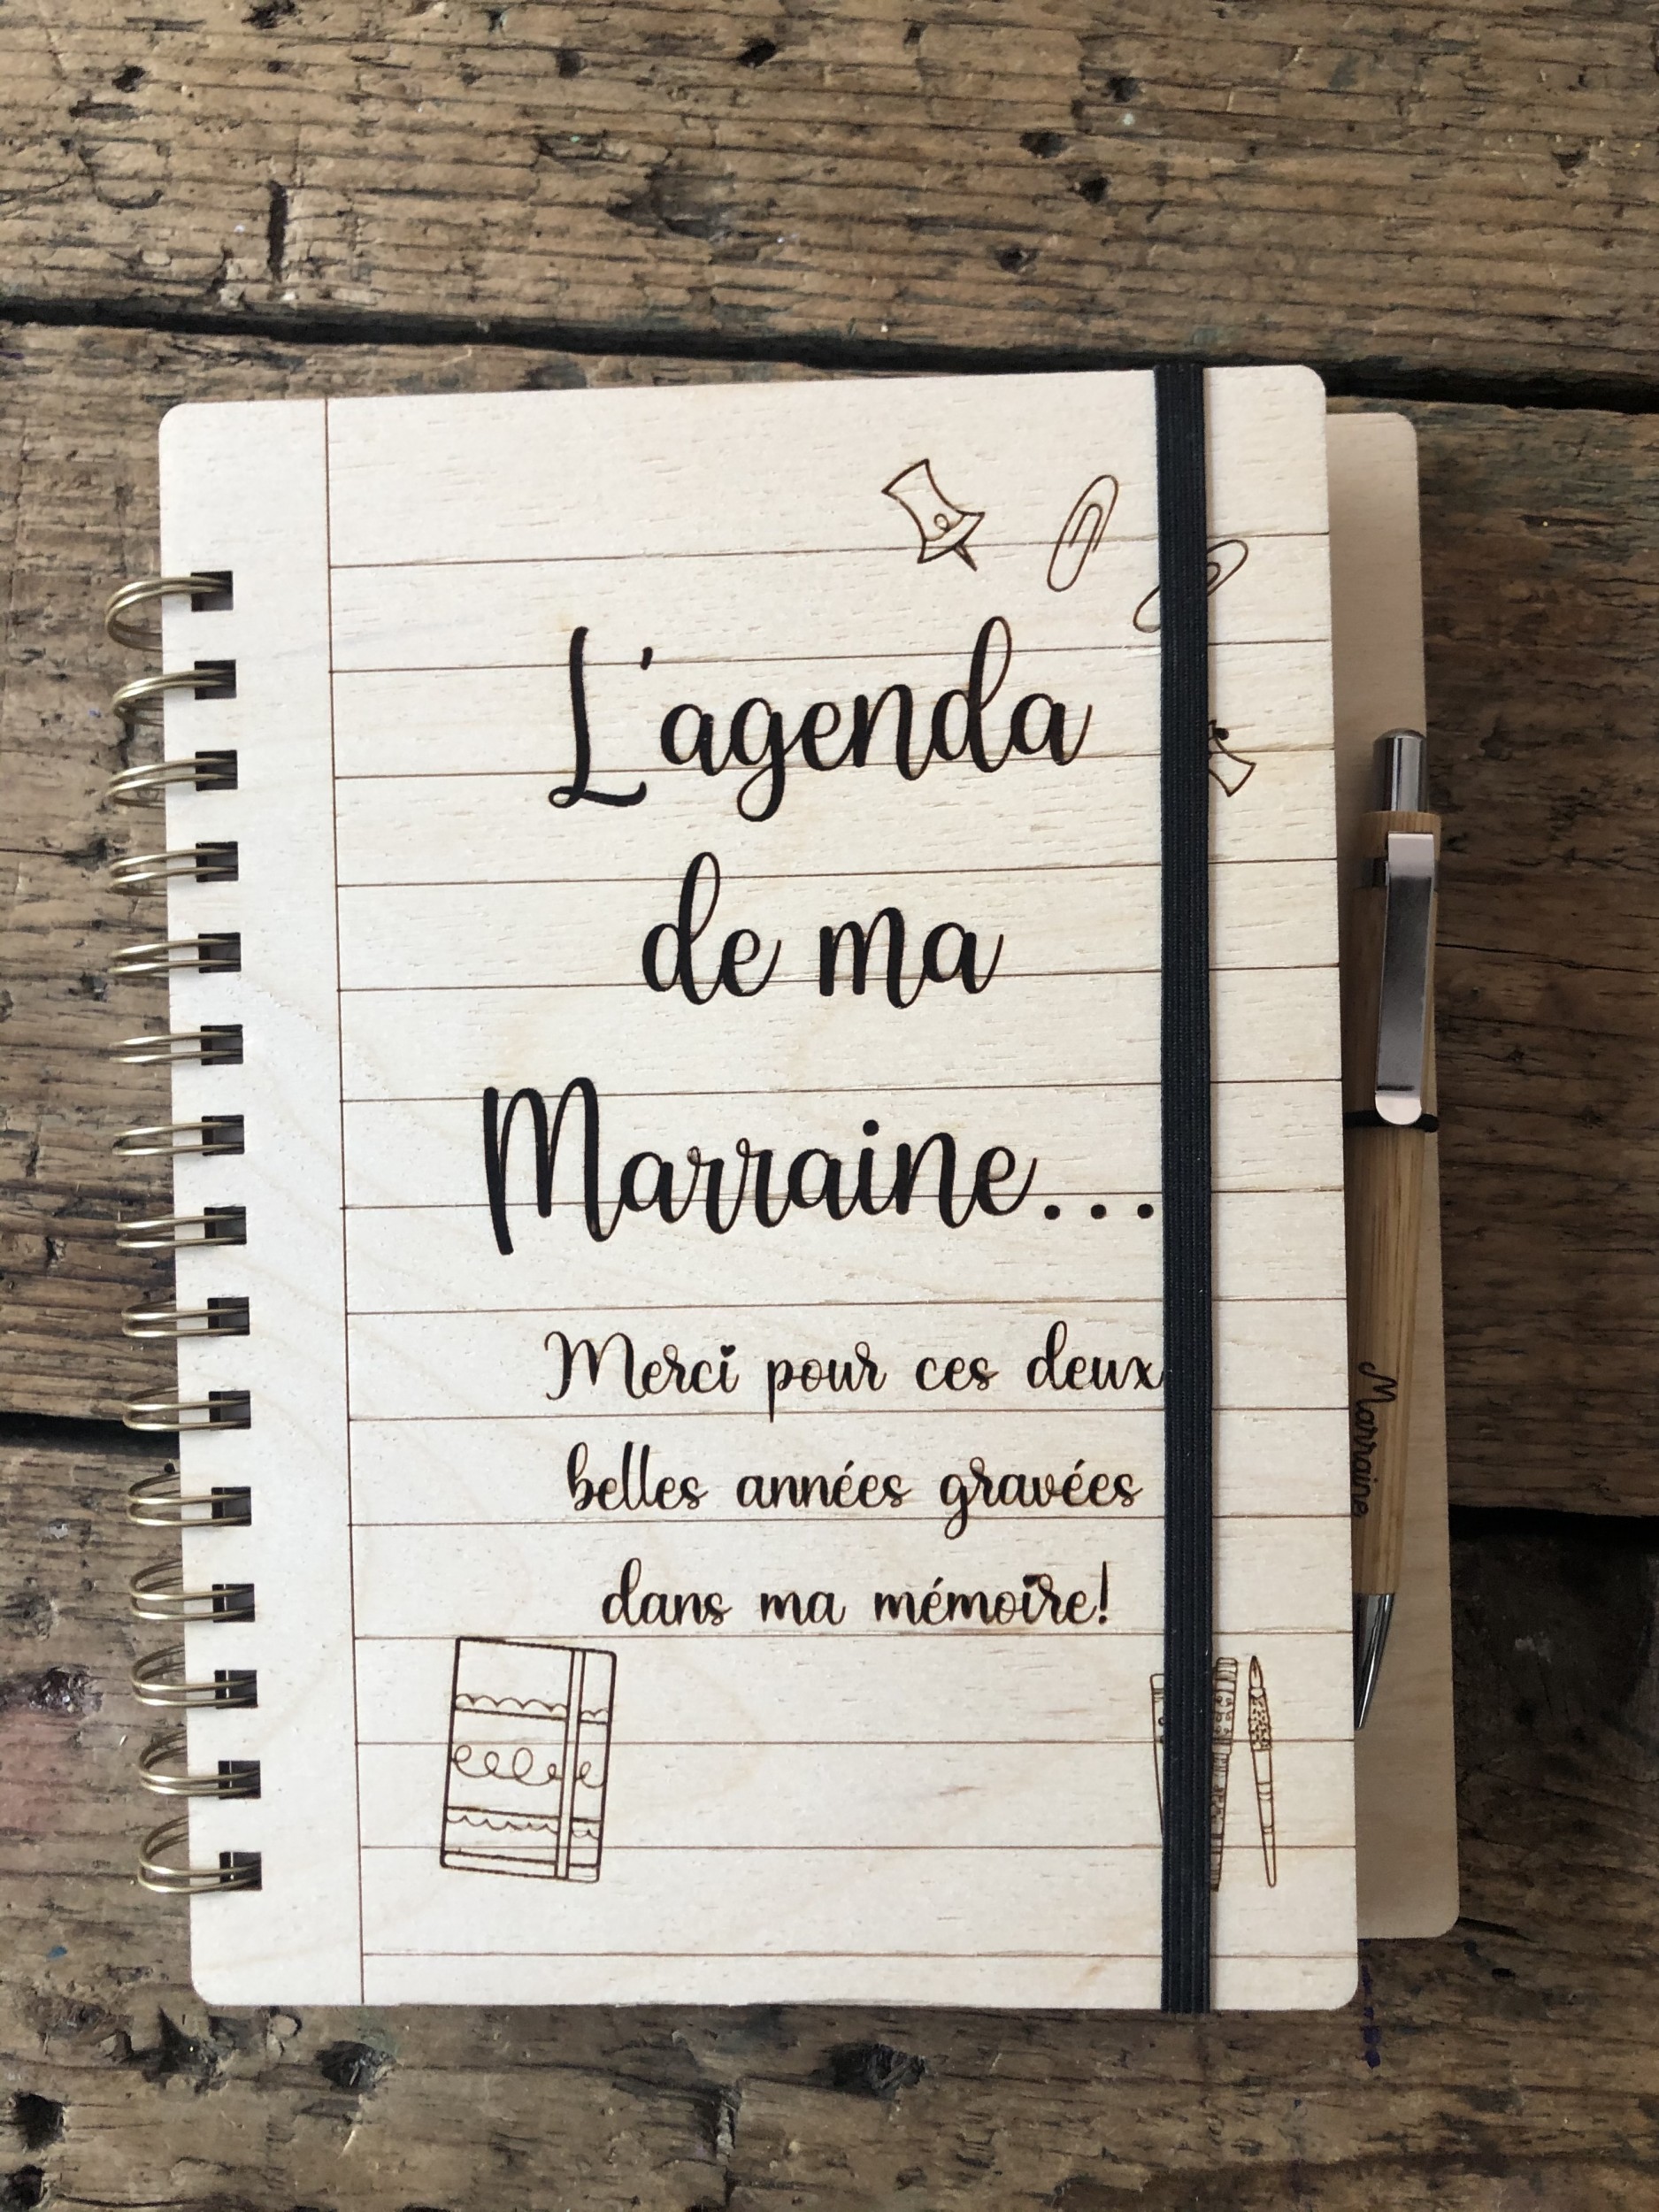 L'agenda
de ma
Marraine...
Merci pour ces deux
belles années gravées
dans ma mémoire!
Marraine